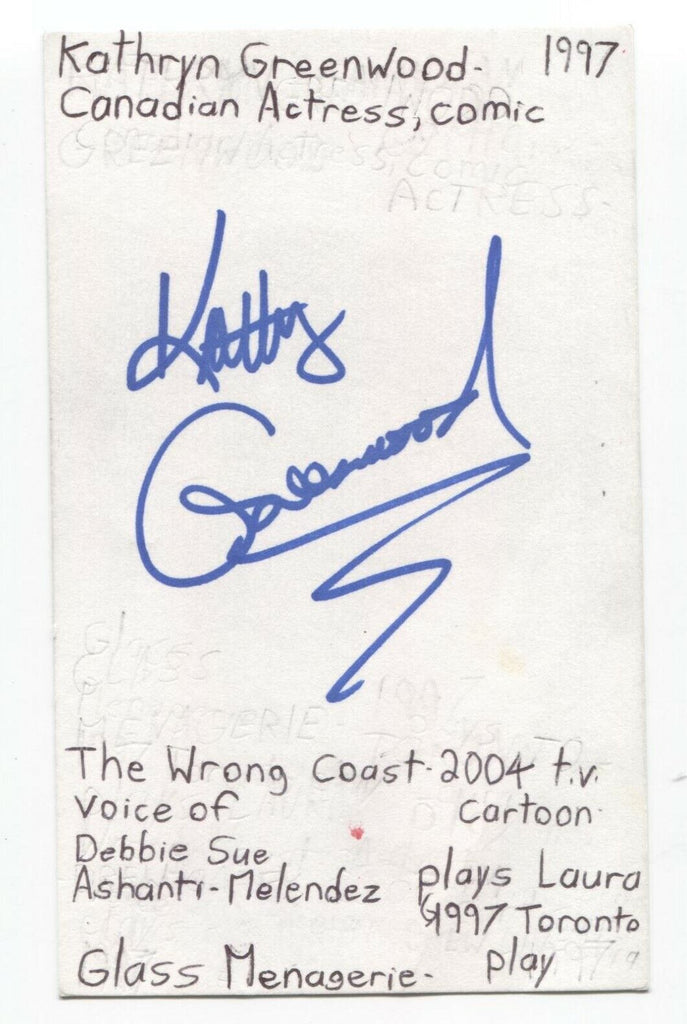 Kathryn Greenwood- 1997
Canadian Actress, comic
Kathy
Greenwood
The Wrong Coast-2004 t.v.
voice of cartoon
Debbie Sue
Ashanti-Melendez plays Laura
1997 Toronto
Glass Menagerie- play